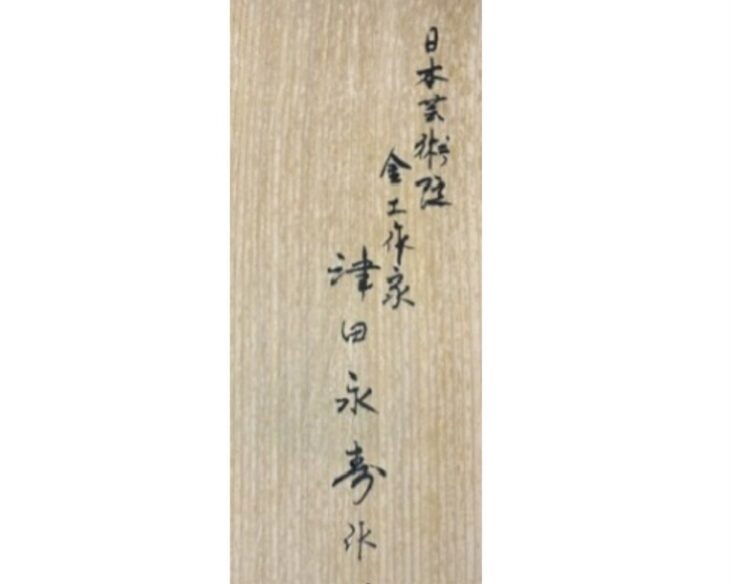 日本芸術院
金工作家
津田永寿作